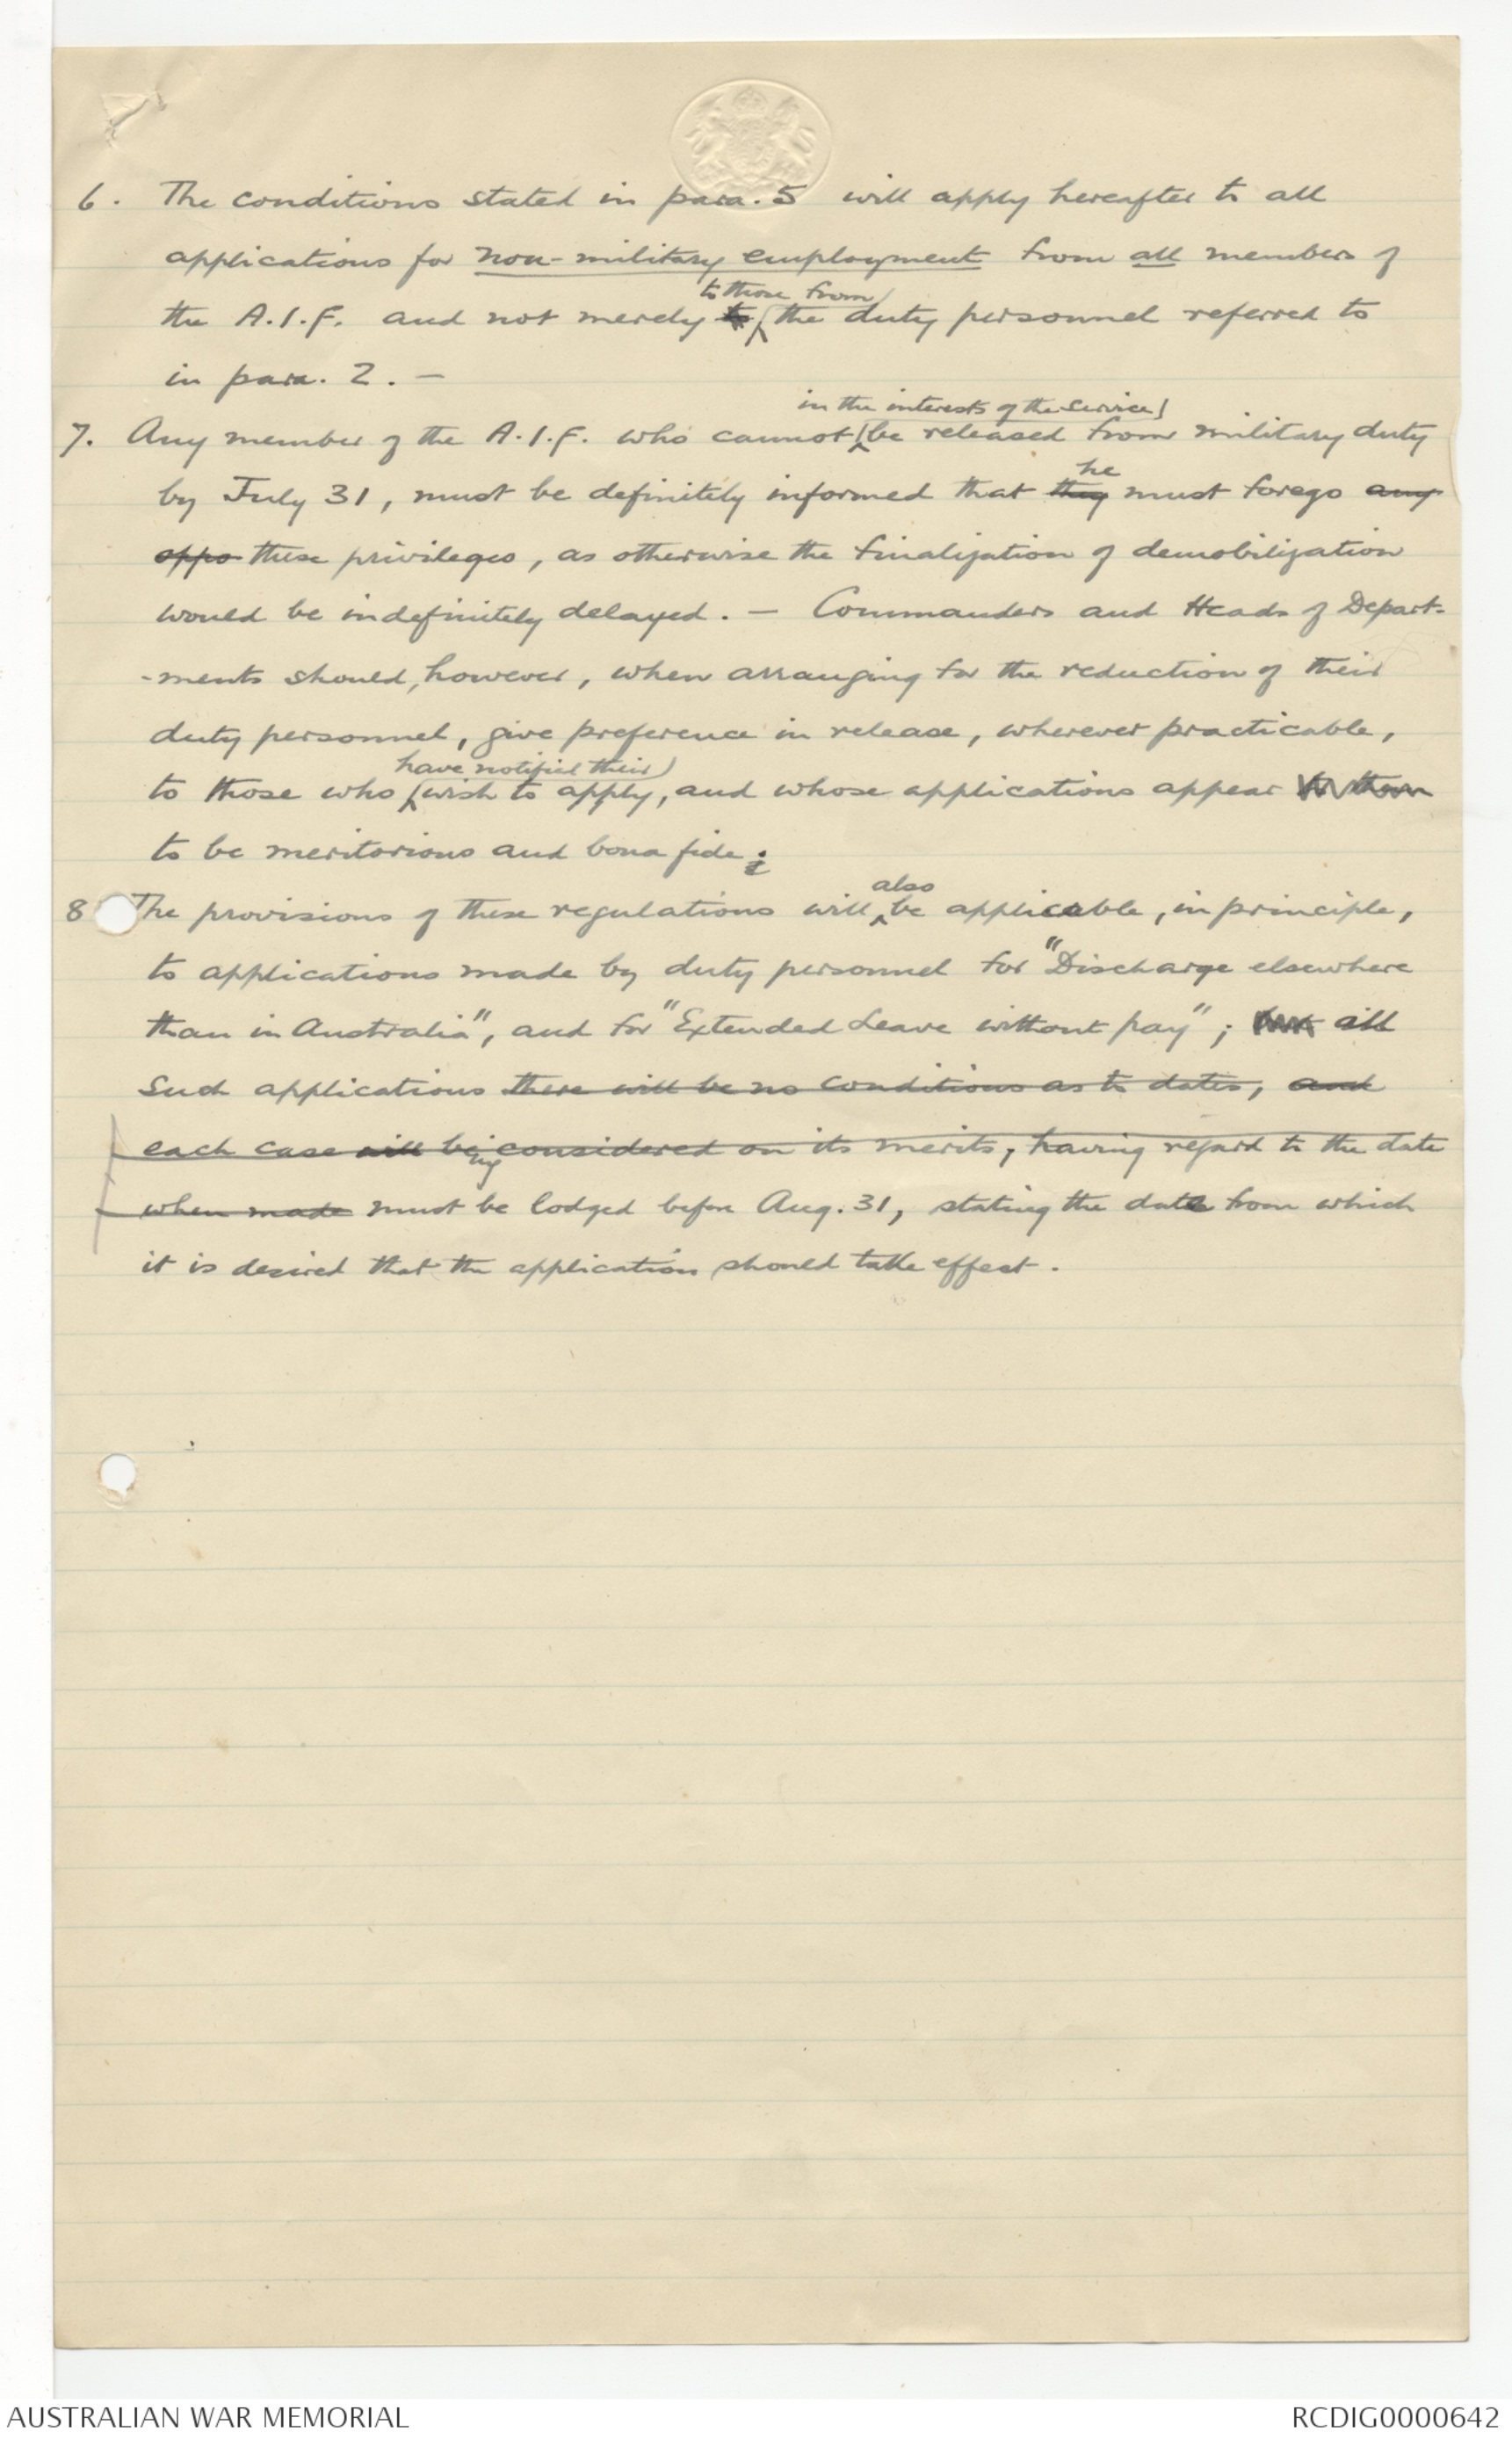 6. The conditions stated in para. 5 will apply hereafter to all
applications for non-military employment from all members of
to those from
the A.I.F. and not merely to the duty personnel referred to
in para. 2. —
in the interests of the Service
7. Any member of the A.I.F. who cannot be released from military duty
he
by July 31, must be definitely informed that they must forego any
oppo these privileges, as otherwise the finalization of demobilization
would be indefinitely delayed. — Commanders and Heads of Depart-
-ments should, however, when arranging for the reduction of their
duty personnel, give preference in release, wherever practicable,
have notified their
to those who wish to apply, and whose applications appear to them
to be meritorious and bona fide.
also
8 The provisions of these regulations will be applicable, in principle,
to applications made by duty personnel for "Discharge elsewhere
than in Australia", and for "Extended Leave without pay"; all
such applications there will be no conditions as to dates, and
each case will being considered on its merits, having regard to the date
when made must be lodged before Aug. 31, stating the date from which
it is desired that the application should take effect.
AUSTRALIAN WAR MEMORIAL
RCDIG0000642